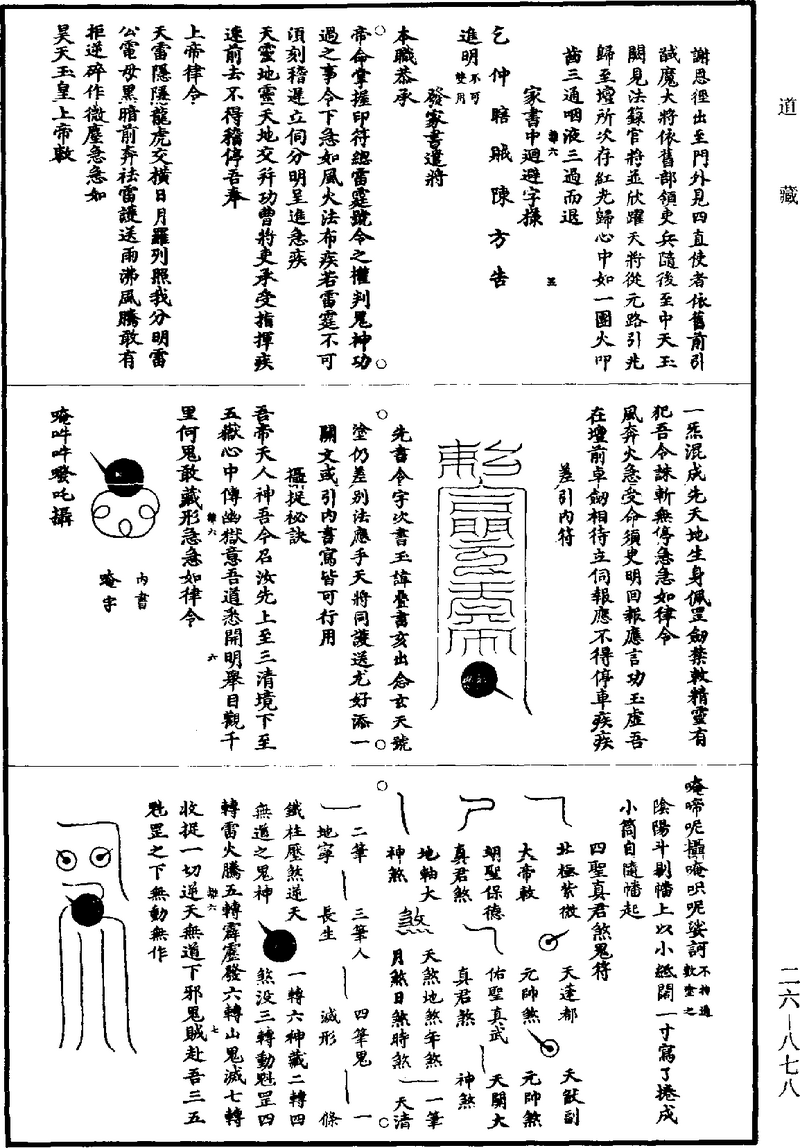 道藏
謝恩徑出至門外見四直使者依舊前引
試魔大將依舊部領吏兵隨後至中天玉
闕見法籙官將並欣躍天將從元路引兆
歸至壇所次存紅光歸心中如一團火叩
齒三通咽液三過而退
家書中迴避字様
乞仲瞎賊陳方告
進明不可雙月
發家書遣將
本職恭承
帝命掌握印符總雷霆號令之權判鬼神功
過之事令下急如風火法布疾若雷霆不可
湏刻稽遲立伺分明呈進急疾
天靈地靈天地交并功曹將吏承受指揮疾
速前去不得稽停吾奉
上帝律令
天雷隱隱龍虎交橫日月羅列照我分明雷
公電母黑暗前奔祛雷護送雨沸風騰敢有
拒逆碎作微塵急急如
昊天玉皇上帝敕
一炁混成先天地生身佩罡劒禁敕精靈有
犯吾令誅斬無停急急如律令
風奔火急受命須臾明囘報應言功玉虛吾
在壇前卓劒相待立伺報應不得停車疾疾
差引內符
先書令字次書玉諱疊書亥出念玄天號
塗仍差別法應手天將同護送尤好添一
關文或引內書寫皆可行用
攝捉秘訣
吾帝天人神吾今召汝先上至三清境下至
五嶽心中傳幽獄意吾道悉開明舉目觀千
里何鬼敢藏形急急如律令
內書
唵字
唵吽吽發吒攝
唵啼呢攝唵呎呢娑訶
陰陽斗剔幡上以小紙闊一寸寫了捲成
小筒自隨幡起
四聖真君煞鬼符
北極紫微
大帝敕
天蓬都
元帥煞
天猷副
元帥煞
翊聖保德
真君煞
佑聖真武
真君煞
天關大
神煞
地軸大
神煞
煞
天煞地煞年煞
月煞日煞時煞
一筆
天清
二筆
地寧
三筆人
長生
四筆鬼
滅形
一
條
鐵柱壓煞逆天
無道之鬼神
一轉六神藏二轉四
煞没三轉動魁罡四
轉雷火騰五轉霹靂發六轉山鬼滅七轉
收捉一切逆天無道下邪鬼賊赴吾三五
魁罡之下無動無作
二六—八七八